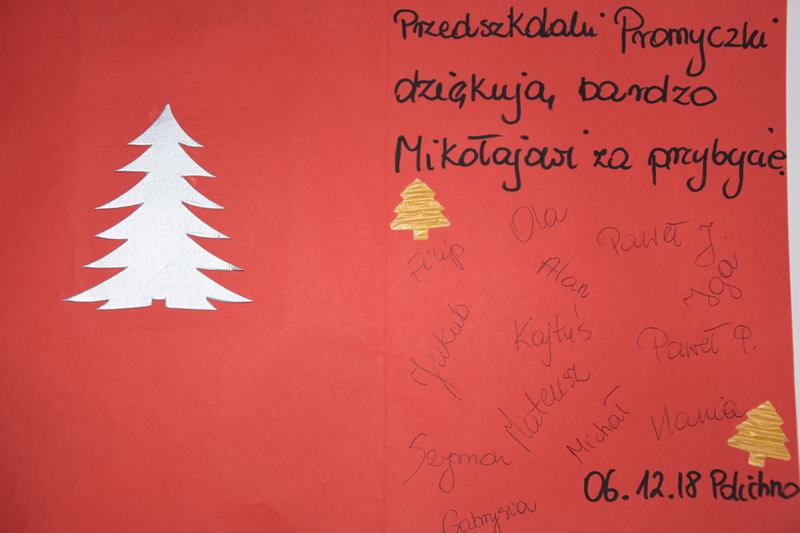 Przedszkolaki Promyczki
dziękują bardzo
Mikołajowi za przybycie.
Ola
Paweł J.
Filip
Alan
Iga
Jakub
Kajtuś
Paweł P.
Mateusz
Michał
Hania
Szymon
06.12.18 Polichno
Gabrysia